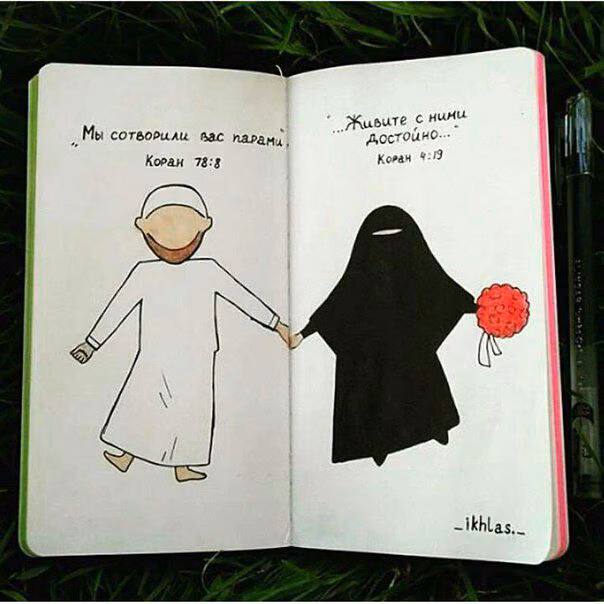 „Мы сотворили вас парами".
Коран 78:8
"...Живите с ними
достойно..."
Коран 4:19
_ikhlas._